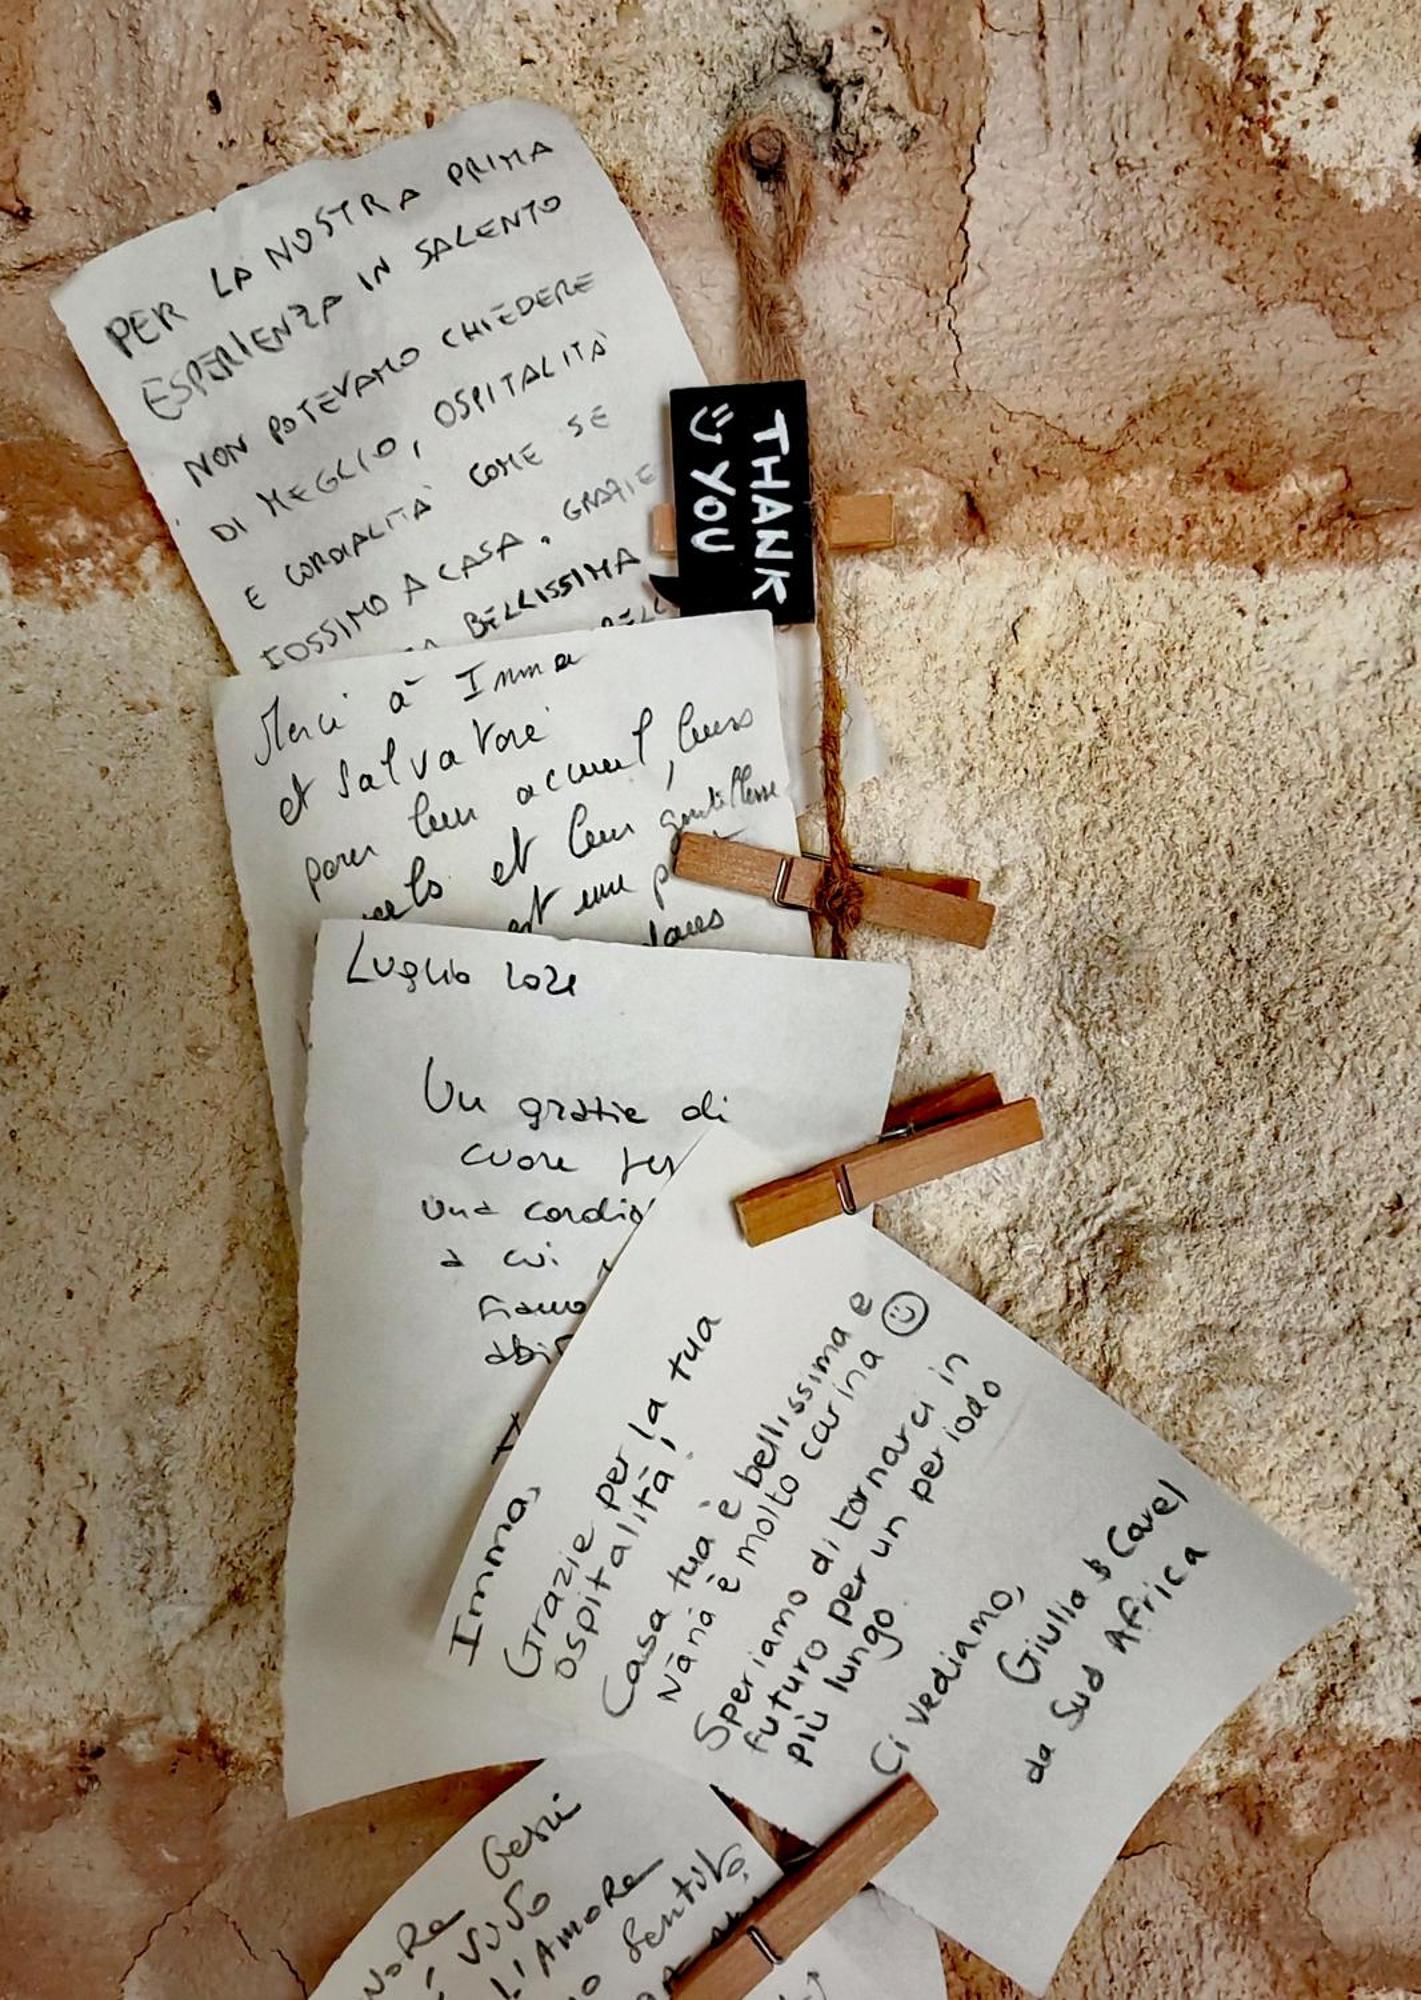 PER LA NOSTRA PRIMA
ESPERIENZA IN SALENTO
NON POTEVAMO CHIEDERE
DI MEGLIO, OSPITALITÀ
E CORDIALITÀ COME SE
FOSSIMO A CASA. GRAZIE
BELLISSIMA
THANK
YOU
Merci à Imma
et Salvatore
pour leur accueil, leurs
et leur gentillesse
est une
dans
Luglio 2021
Un grazie di
cuore per
una
a cui
siamo
Imma,
Grazie per la tua
ospitalità!
Casa tua è bellissima e
Nanà è molto carina
Speriamo di tornarci in
futuro per un periodo
più lungo.
Ci vediamo,
Giulia & Cavel
da Sud Africa
L'AMORE